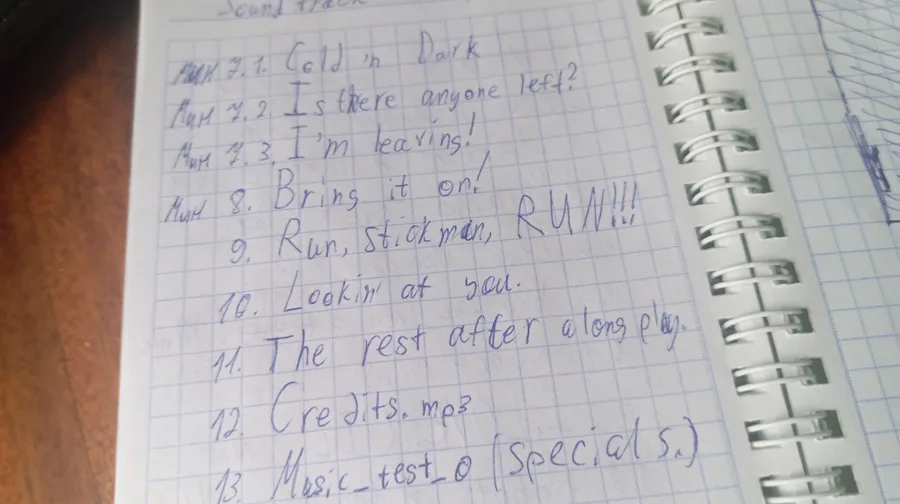 Sound track
Мин 7.1. Cold 'n Dark
Мин 7.2. Is there anyone left?
Мин 7.3. I'm leaving!
Мин 8. Bring it on!
9. Run, stickman, RUN!!!
10. Lookin' at you.
11. The rest after a long play.
12. Credits.mp3
13. Music_test_0 (special s.)